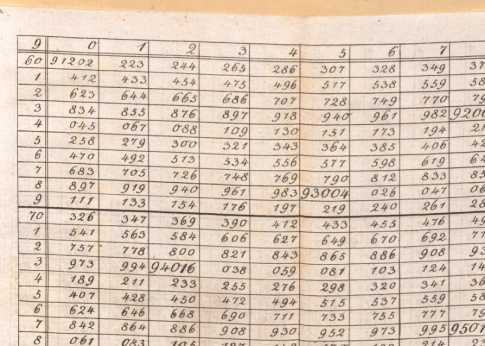 9 0 1 2 3 4 5 6 7
60 91202 223 244 265 286 307 328 349
1 412 433 454 475 496 517 538 559
2 623 644 665 686 707 728 749 770
3 834 855 876 897 918 940 961 982
4 045 067 088 109 130 151 173 194
5 258 279 300 321 343 364 385 406
6 470 492 513 534 556 577 598 619
7 683 705 726 748 769 790 812 833
8 897 919 940 961 983 93004 026 047
9 111 133 154 176 197 219 240 261
70 326 347 369 390 412 433 455 476
1 541 563 584 606 627 649 670 692
2 757 778 800 821 843 865 886 908
3 973 994 94016 038 059 081 103 124
4 189 211 233 255 276 298 320 341
5 407 428 450 472 494 515 537 559
6 624 646 668 690 711 733 755 777
7 842 864 886 908 930 952 973 995
8 061 083 105